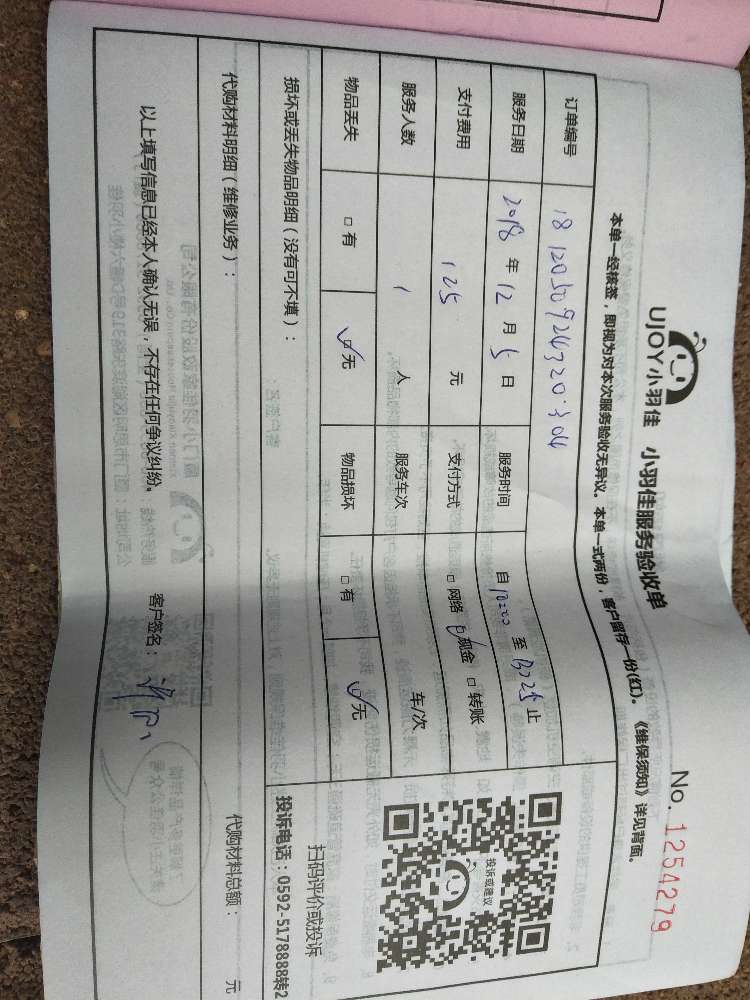 UJOY小羽佳 小羽佳服务验收单
No. 1254279
本单一经接签，即视为对本次服务验收无异议。本单一式两份，客户留存一份(红)。《维保须知》详见背面。
订单编号 1812050924320304
服务日期 2018 年 12 月 5 日 服务时间 自 至 止
支付费用 125 元 支付方式 □ 网络 ☑ 现金 □ 转账
服务人数 1 人 服务车次 车/次
物品丢失 □ 有 ☑ 无 物品损坏 □ 有 ☑ 无
损坏或丢失物品明细（没有可不填）：
投诉或建议
扫码评价或投诉
投诉电话：0592-5178888转2
代购材料明细（维修业务）：
代购材料总额： 元
以上填写信息已经本人确认无误，不存在任何争议纠纷。 客户签名：